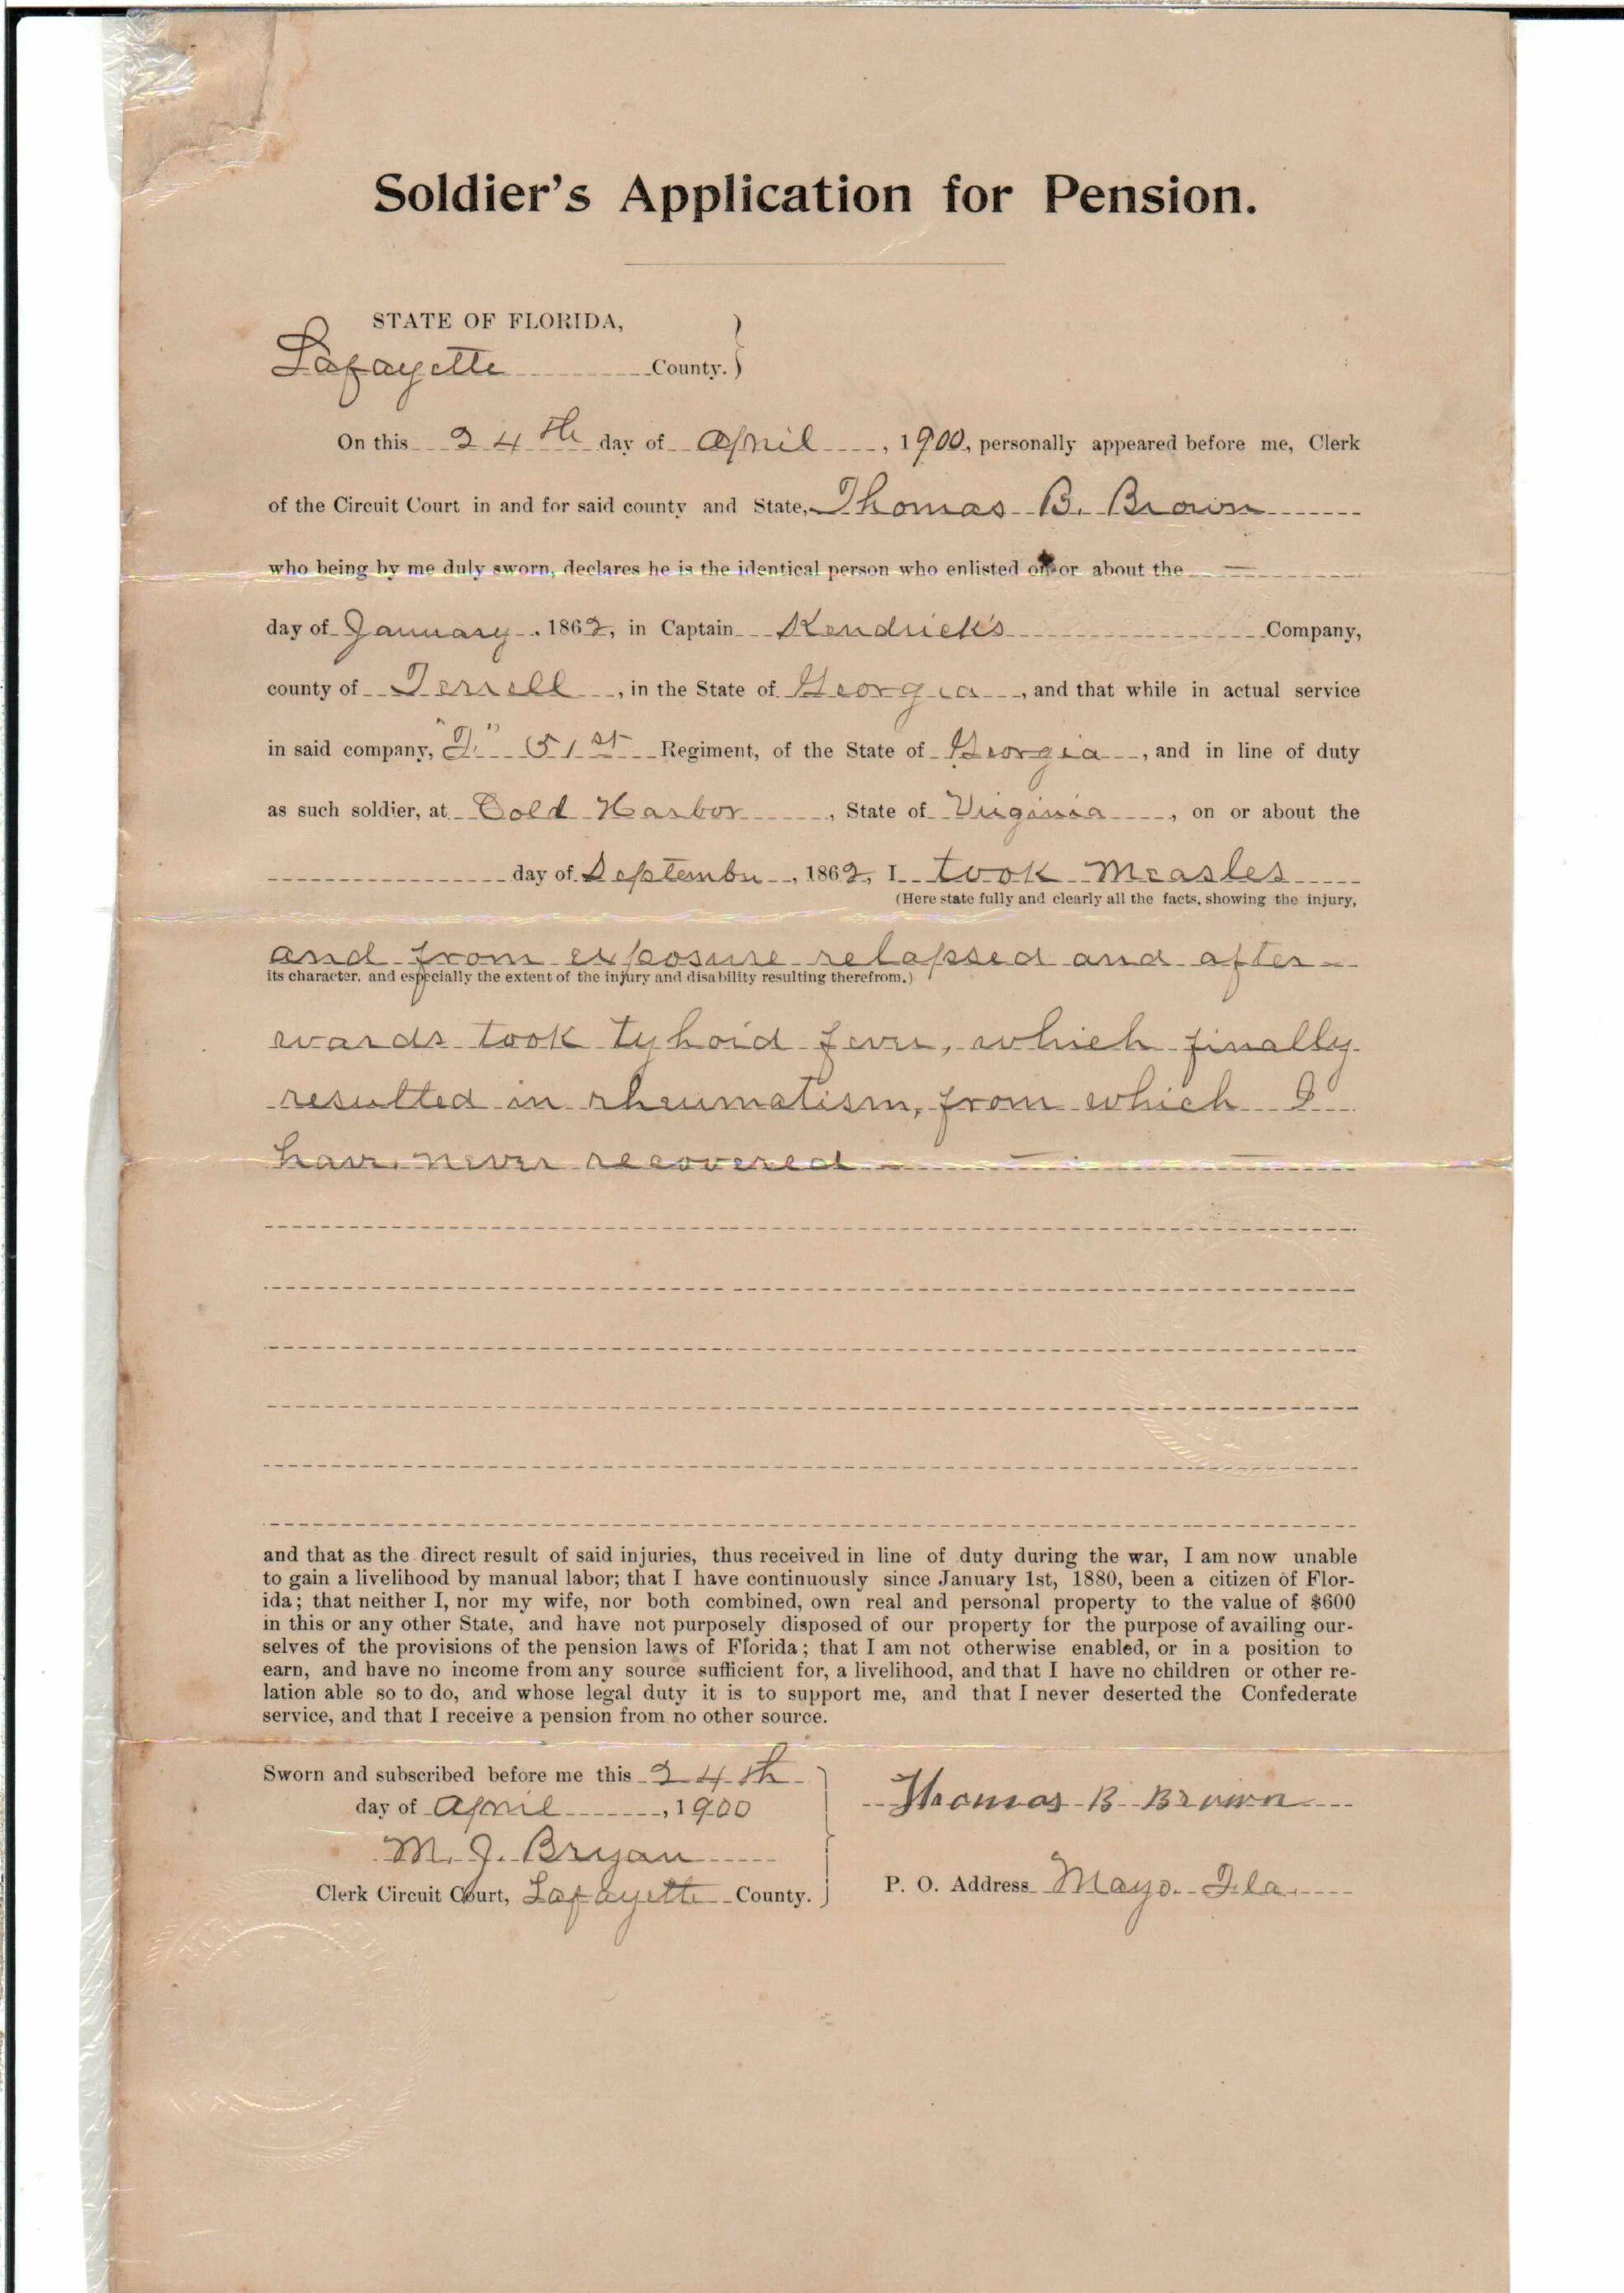 Soldier's Application for Pension.
STATE OF FLORIDA,
Lafayette County.
On this 24th day of April, 1900, personally appeared before me, Clerk
of the Circuit Court in and for said county and State, Thomas B. Brown
who being by me duly sworn, declares he is the identical person who enlisted on or about the
day of January, 1862, in Captain Kendrick's Company,
county of Terrell, in the State of Georgia, and that while in actual service
in said company, 51st Regiment, of the State of Georgia, and in line of duty
as such soldier, at Cold Harbor, State of Virginia, on or about the
day of September, 1862, I took Measles
(Here state fully and clearly all the facts, showing the injury,
and from exposure relapsed and after-
its character, and especially the extent of the injury and disability resulting therefrom.)
wards took tyhoid fever, which finally
resulted in rheumatism, from which I
have never recovered
and that as the direct result of said injuries, thus received in line of duty during the war, I am now unable
to gain a livelihood by manual labor; that I have continuously since January 1st, 1880, been a citizen of Flor-
ida; that neither I, nor my wife, nor both combined, own real and personal property to the value of $600
in this or any other State, and have not purposely disposed of our property for the purpose of availing our-
selves of the provisions of the pension laws of Florida; that I am not otherwise enabled, or in a position to
earn, and have no income from any source sufficient for, a livelihood, and that I have no children or other re-
lation able so to do, and whose legal duty it is to support me, and that I never deserted the Confederate
service, and that I receive a pension from no other source.
Sworn and subscribed before me this 24th
day of April, 1900
M. J. Bryan
Clerk Circuit Court, Lafayette County.
Thomas B Brown
P. O. Address Mayo. Fla.